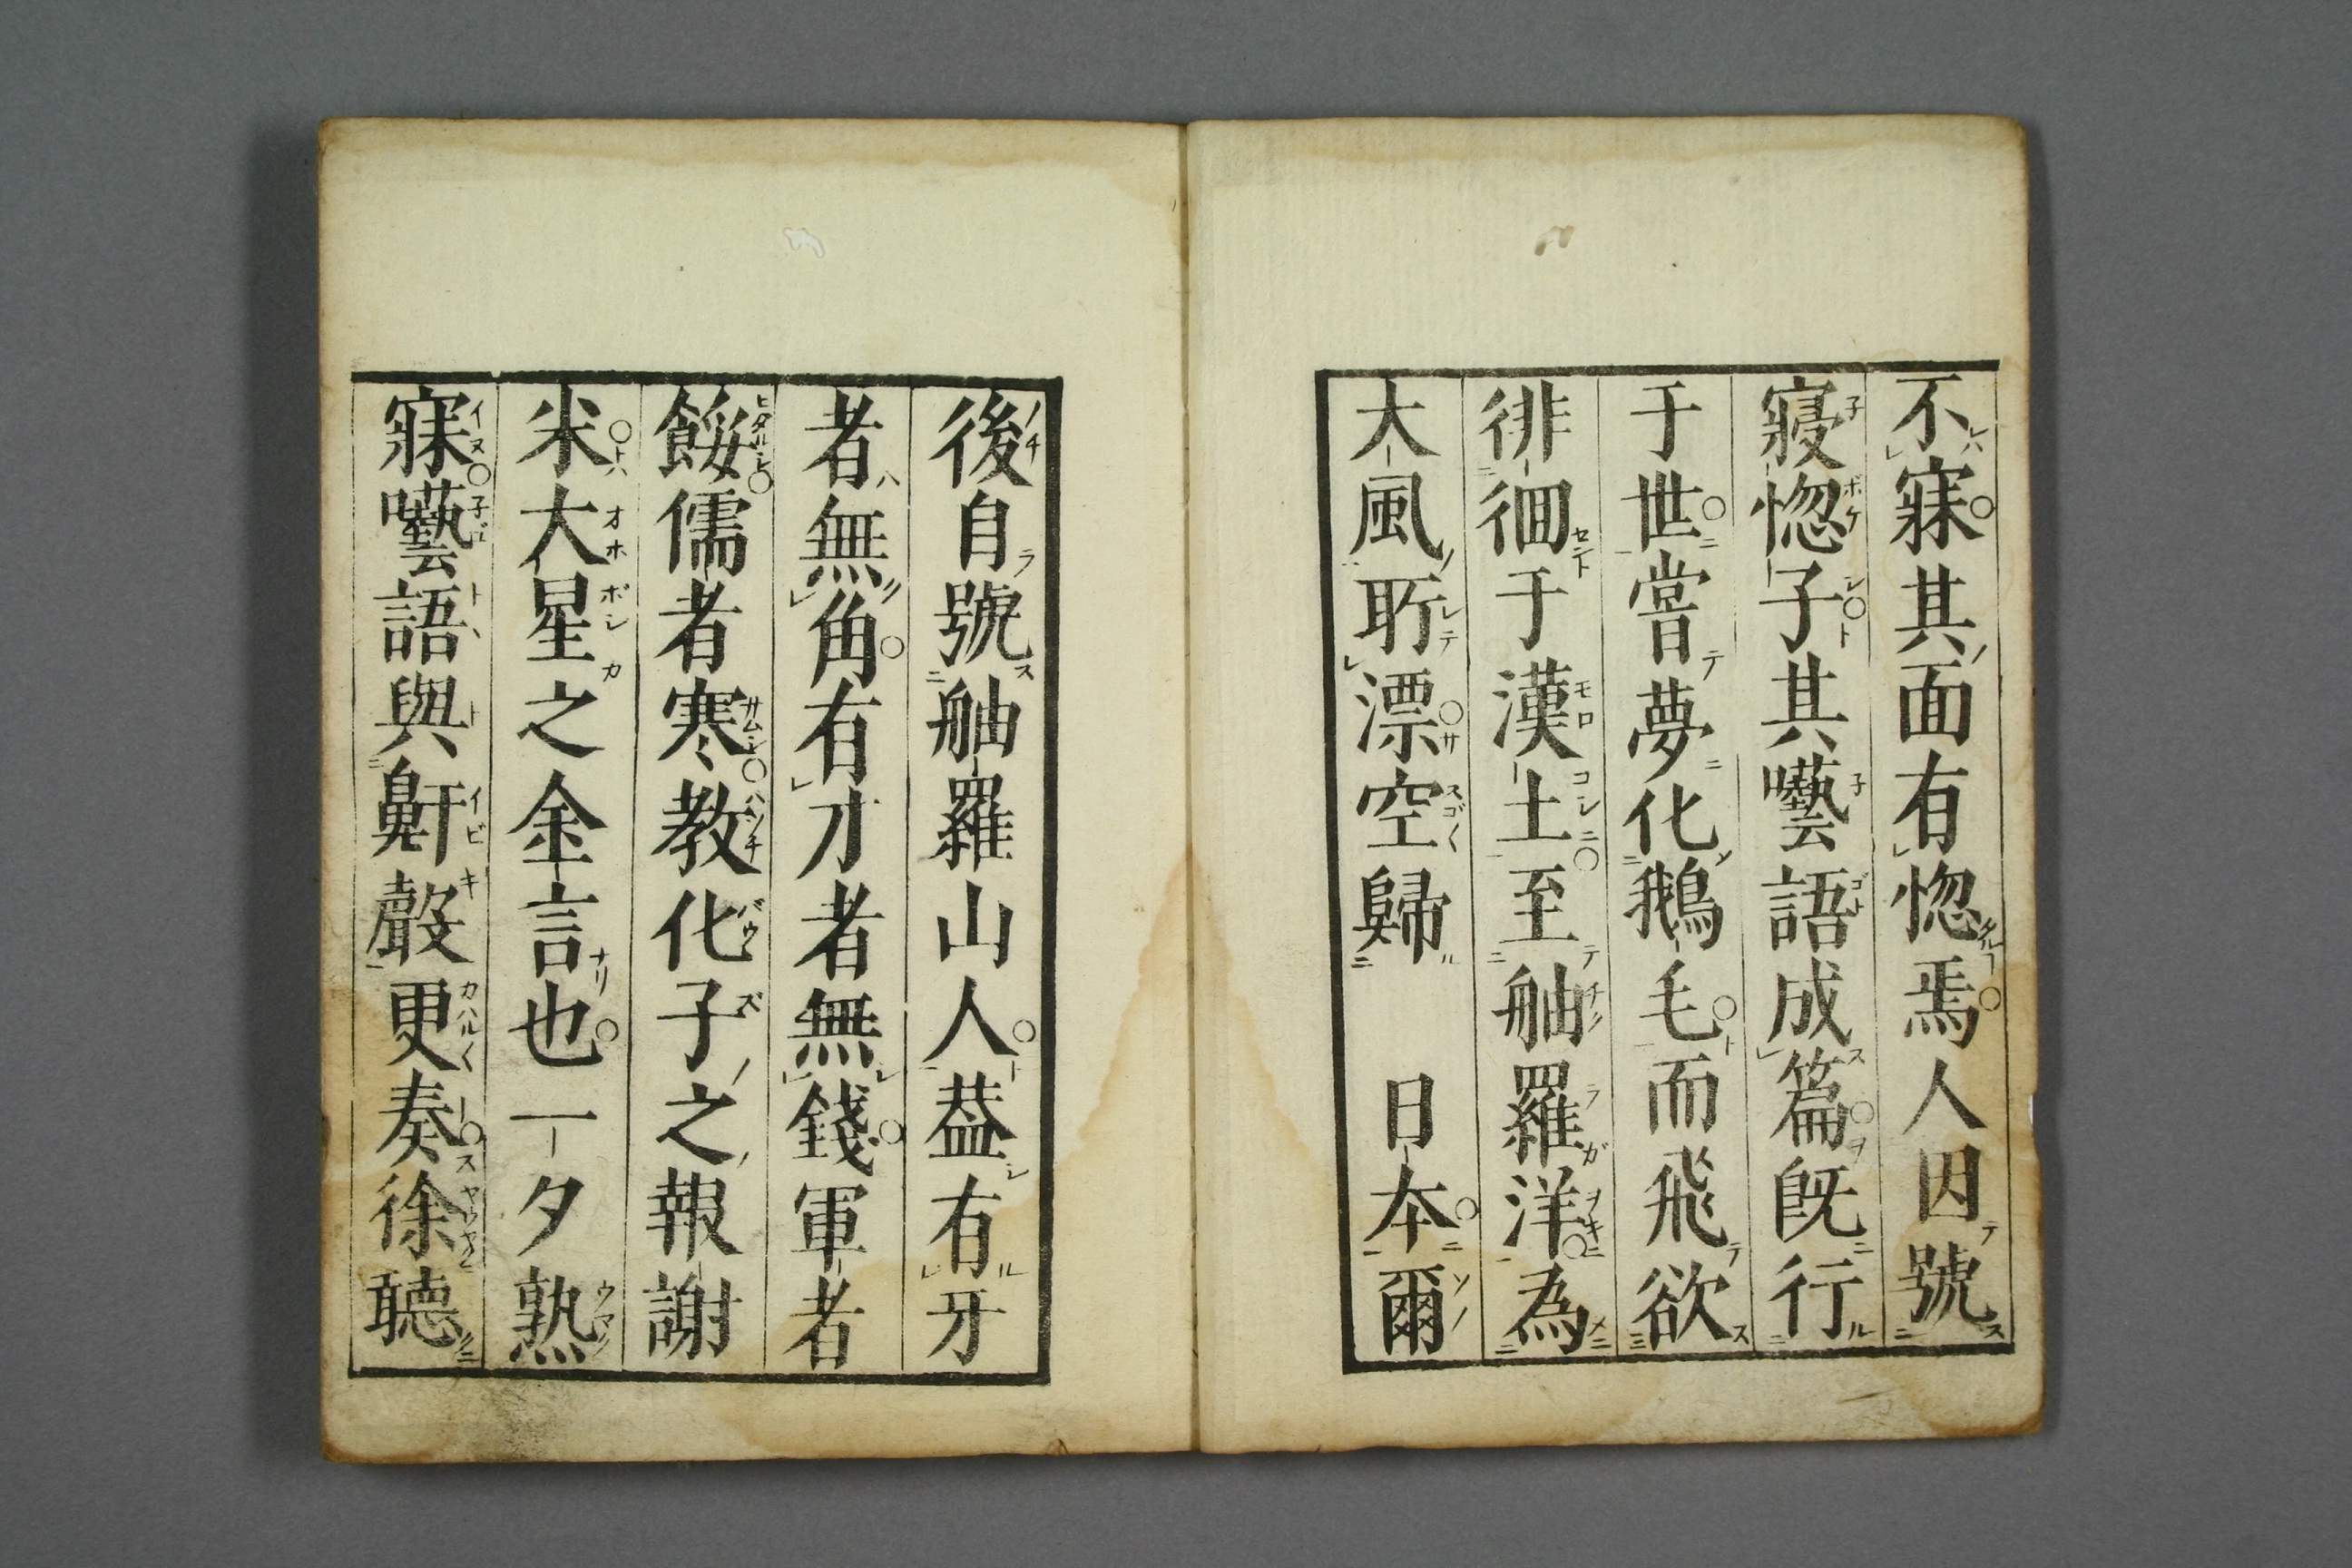 不寐其面有惚焉人因號
寢惚子其囈語成篇既行
于世嘗夢化鵝毛而飛欲
徘徊于漢土至舳羅洋為
大風所漂空歸　日本爾
後自號舳羅山人葢有牙
者無角有才者無錢軍者
餒儒者寒教化子之報謝
米大星之金言也一夕熟
寐囈語與鼾聲更奏徐聽